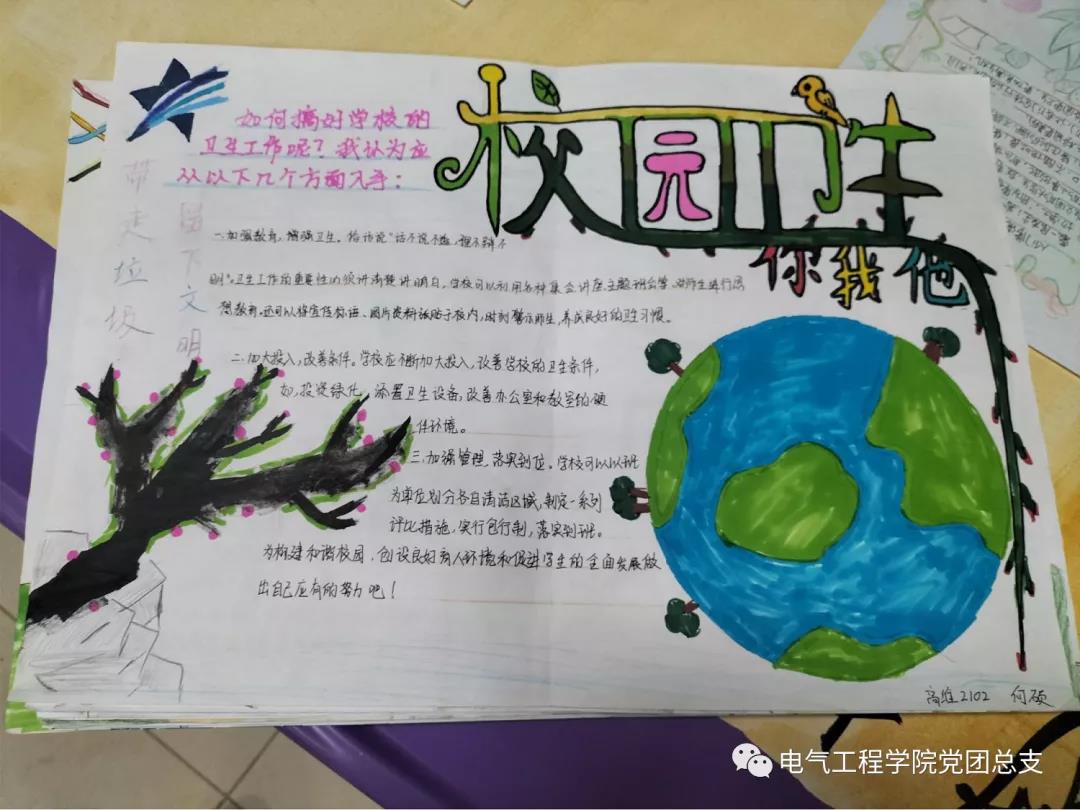 校园卫生
你我他
如何搞好学校的
卫生工作呢？我认为应
从以下几个方面入手：
带走垃圾
留下文明
一.加强教育，增强卫生。俗话说"话不说不透，理不辩不
明"。卫生工作的重要性必须讲清楚讲明白，学校可以利用各种集会讲座、主题班会等，对师生进行思
想教育。还可以将宣传标语、图片资料张贴于校内，时刻警示师生，养成良好的卫生习惯。
二.加大投入，改善条件。学校应不断加大投入，改善学校的卫生条件，
如，投资绿化，添置卫生设备，改善办公室和教室的硬
件环境。
三.加强管理，落实到位。学校可以以班
为单位划分各自清洁区域，制定一系列
评比措施，实行包行制，落实到班。
为构建和谐校园，创设良好育人环境和促进学生的全面发展做
出自己应有的努力吧！
高维2102 何硕
电气工程学院党团总支